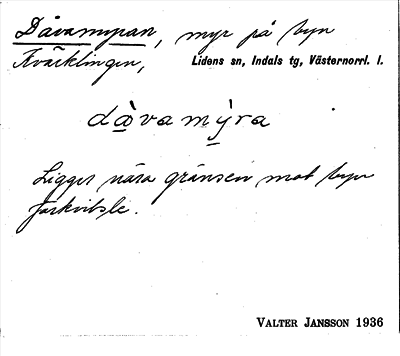 Dåvamyran, myr på byn
Kvarklingen, Lidens sn, Indals tg, Västernorrl. l.
då̀vamỳra
Ligger nära gränsen mot byn
VALTER JANSSON 1936